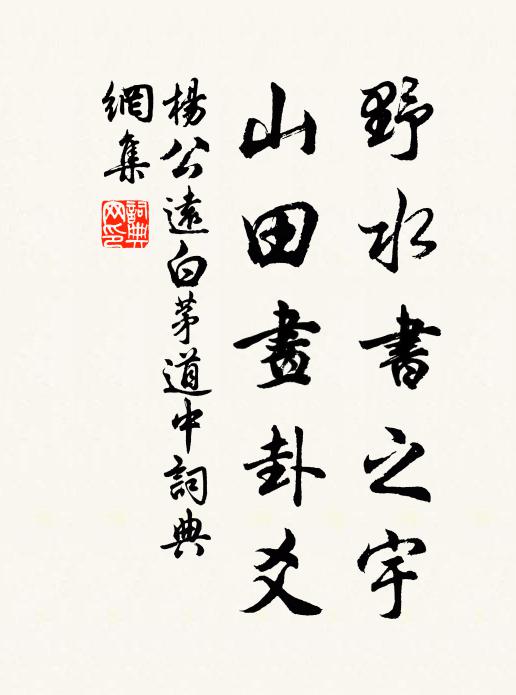 野水書之字
山田畫卦爻
楊公遠白茅道中詞典
網集
詞典網印